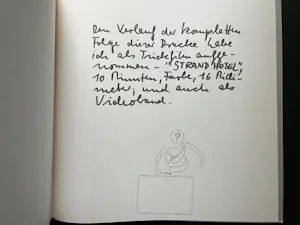 Den Verlauf der kompletten
Folge dieser Drucke habe
ich als Trickfilm aufge-
nommen – "STRAND HOTEL",
10 Minuten, Farbe, 16 Milli-
meter; und auch als
Videoband.
?